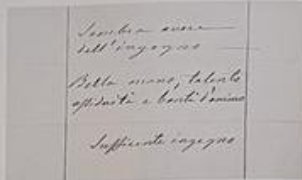 Sembra avere
dell'ingegno
Bella mano, talento
assiduità e bontà d'animo
Sufficiente ingegno